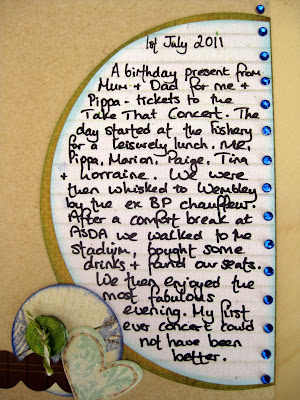 1st July 2011
A birthday present from
Mum + Dad for me +
Pippa - tickets to the
Take That Concert. The
day started at the fishery
for a leisurely lunch. ME,
Pippa, Marion, Paige, Tina
+ Lorraine. We were
then whisked to Wembley
by the ex BP chauffeur.
After a comfort break at
ASDA we walked to the
stadium, bought some
drinks + found our seats.
We then enjoyed the
most fabulous
evening. My first
ever concert could
not have been
better.